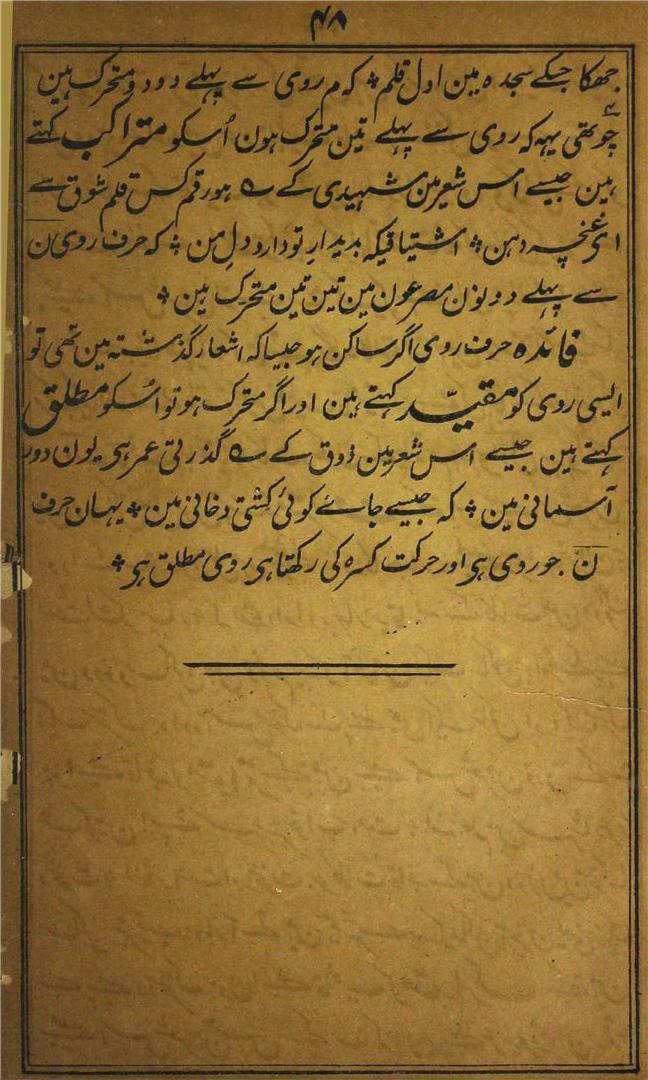 ۴۸
جھکا جسکے سجدہ مین اول قلم ❊ کہ م روی سے پہلے دو دو متحرک ہین
چوتھی یہہ کہ روی سے پہلے تین متحرک ہون اُسکو متراکب کہتے
ہین جیسے اس شعر مین شہیدی کے ؎ ہو رقم کس قلم شوق سے
ای غنچہ دہن ❊ اشتیاقیکہ بدیدارِ تو دارد دلِ من ❊ کہ حرف روی ن
سے پہلے دونون مصرعون مین تین تین متحرک ہین ❊
فائدہ حرف روی اگر ساکن ہو جیسا کہ اشعار گذشتہ مین تھی تو
ایسی روی کو مقیّد کہتے ہین اور اگر متحرک ہو تو اُسکو مطلق
کہتے ہین جیسے اس شعر مین ذوق کے ؎ گذرتی عمر ہی یون دور
آسمانی مین ❊ کہ جیسے جائے کوئی کشتی دخانی مین ❊ یہان حرف
ن جو روی ہی اور حرکت کسرہ کی رکھتا ہی روی مطلق ہی ❊